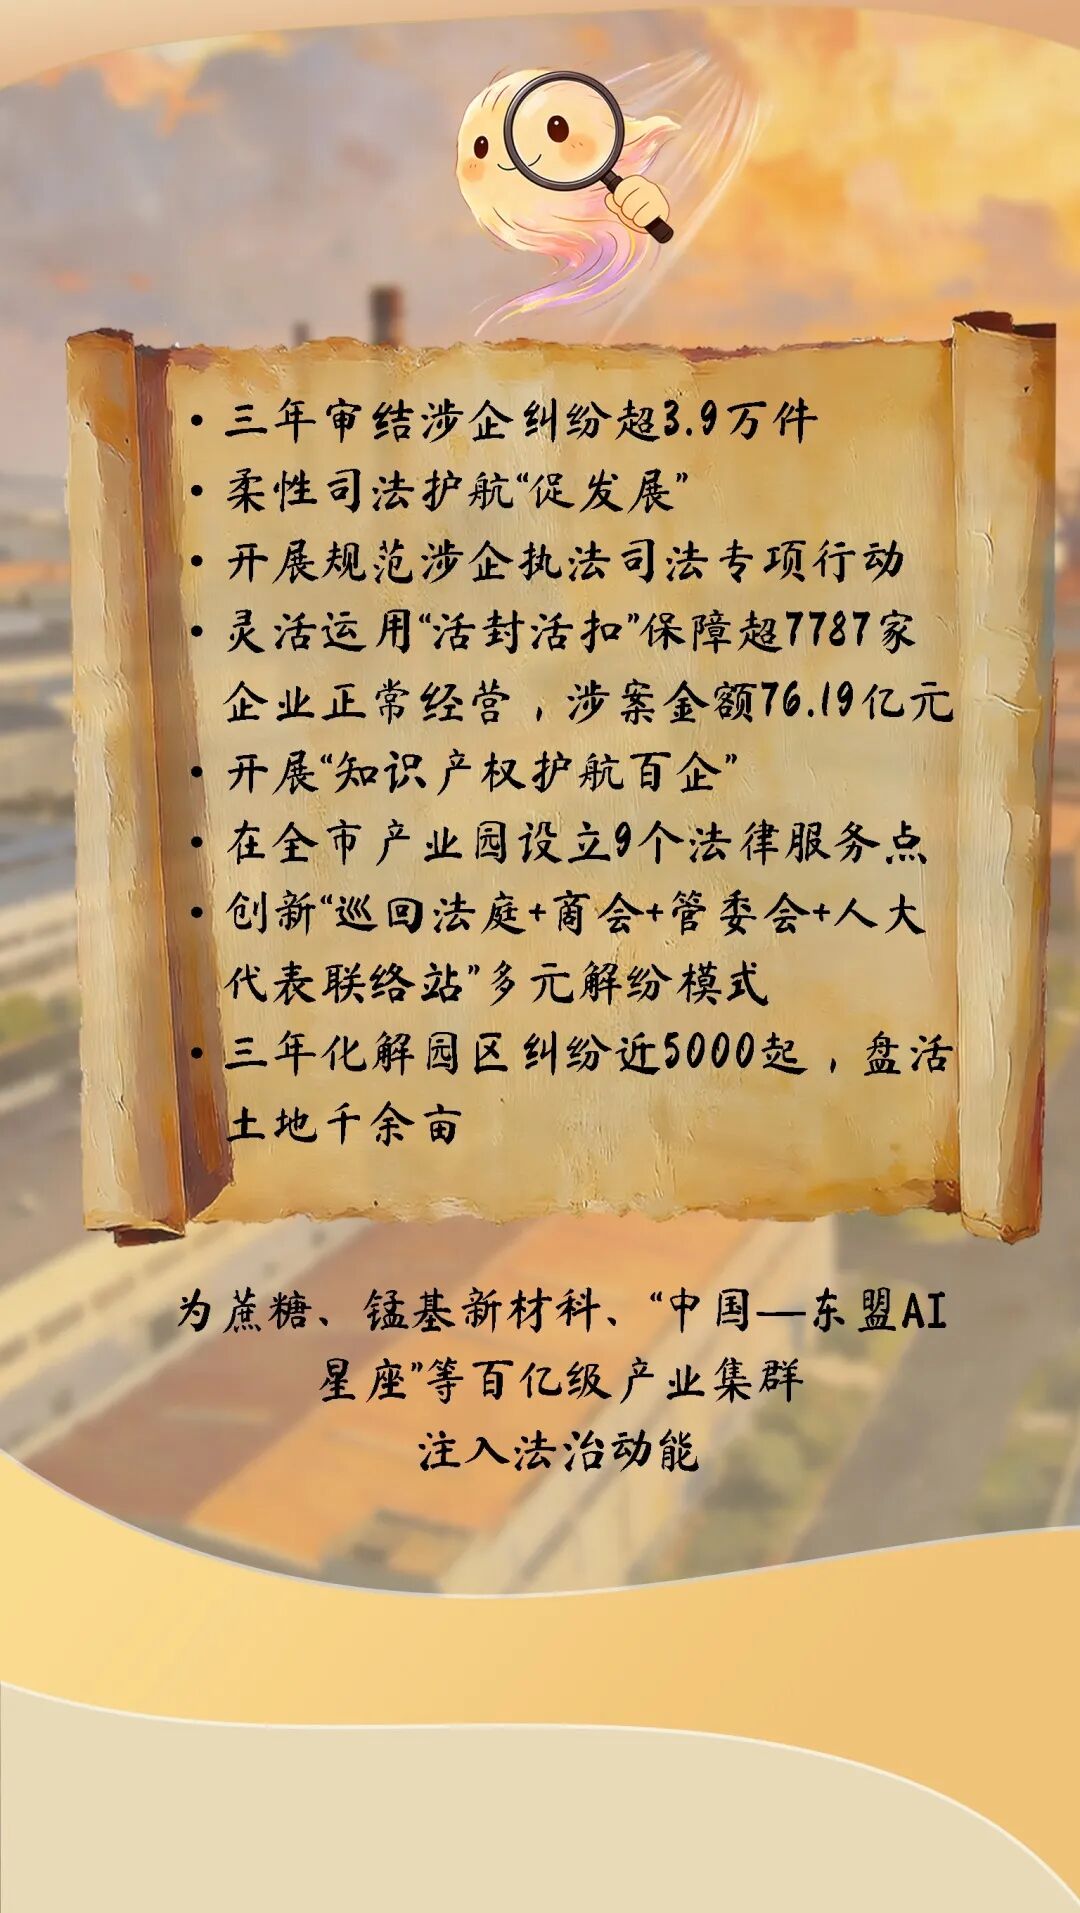 • 三年审结涉企纠纷超3.9万件
• 柔性司法护航“促发展”
• 开展规范涉企执法司法专项行动
• 灵活运用“活封活扣”保障超7787家
企业正常经营，涉案金额76.19亿元
• 开展“知识产权护航百企”
• 在全市产业园设立9个法律服务点
• 创新“巡回法庭+商会+管委会+人大
代表联络站”多元解纷模式
• 三年化解园区纠纷近5000起，盘活
土地千余亩
为蔗糖、锰基新材料、“中国—东盟AI
星座”等百亿级产业集群
注入法治动能